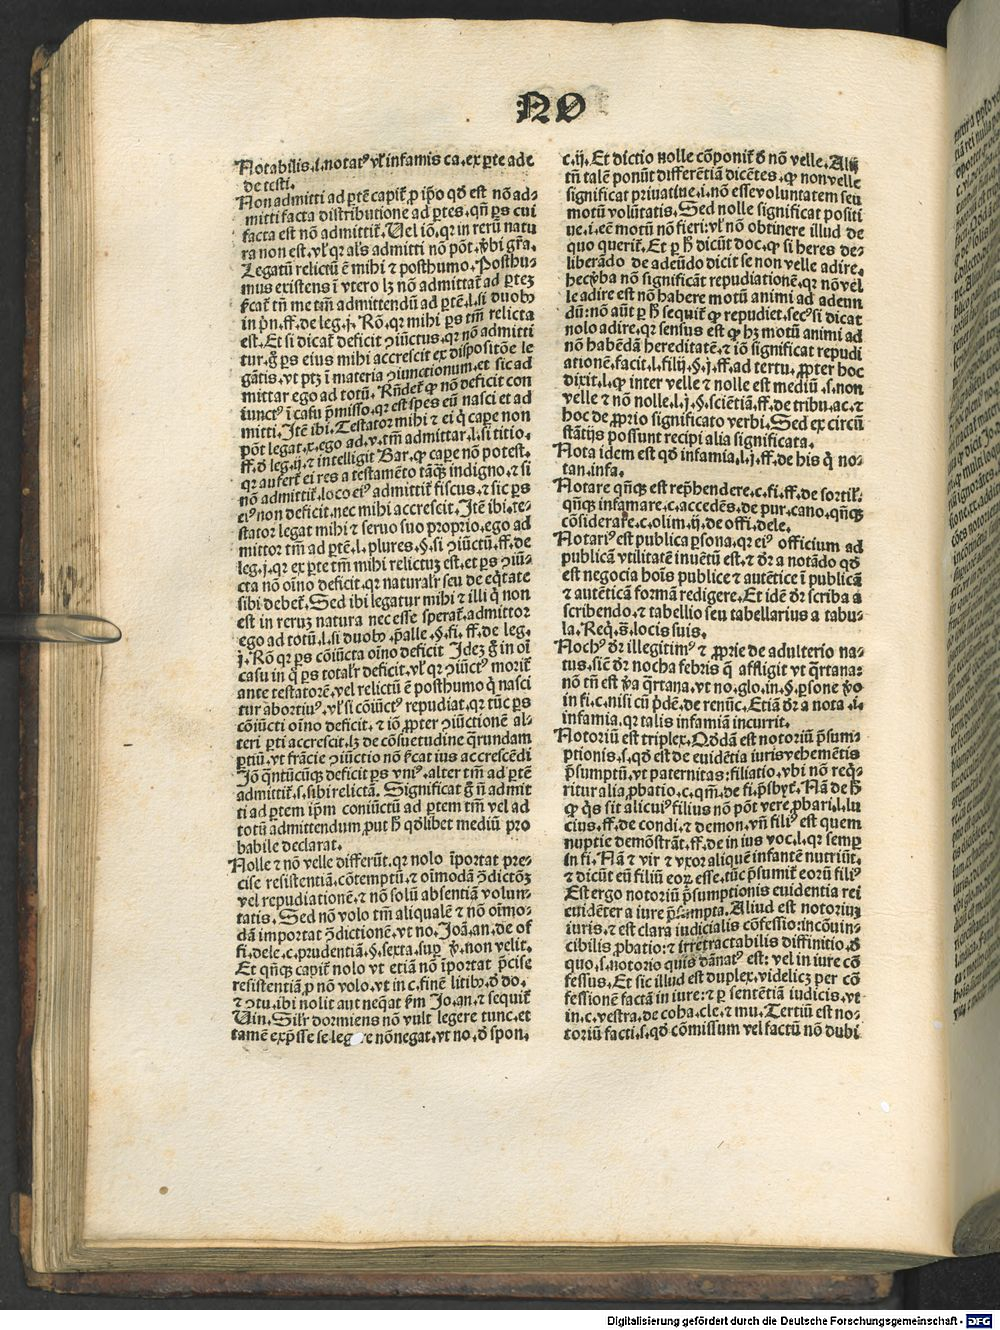 NO
Notabilis.i.notatꝰ vl̓ infamis ca.ex ꝑte a de
de testi.
Non admitti ad ꝑtē capit̉ ꝓ ip̄o qđ est nō ad⸗
mitti facta distributione ad ꝑtes.qn̄ ꝑs cui
facta est nō admittit̉.Uel iō.qꝛ in rerū natu
ra non est.vl̓ qꝛ al̓s admitti nō pōt.v̄bi gr̄a.
Legatū relictū ē mihi ⁊ posthumo.Posthu⸗
mus existens ī vtero lꝫ nō admittat̉ ad ꝑteꝫ
tn̄ me tm̄ admittendū ad ꝑtē.l.si duobꝫ
in pͥn.ff.de leg.j. Rō.qꝛ mihi ꝑs tm̄ relicta
est.Et si dicat̉ deficit ꝯiūctus.qꝛ nō admitti
tur.g̊ ꝑs eius mihi accrescit ex dispositōe le
gātis.vt ptꝫ ī materia ꝯiunctionum.et sic ad
mittar ego ad totū. Rn̄det̉ ꝙ nō deficit con
iunctꝰ ī casu p̄misso.qꝛ est spes eū nasci et ad
mitti.Itē ibi.Testator mihi ⁊ ei q̇ cape non
pōt legat.x.ego ad.v.tm̄ admittar.l.si titio.
ff.đ leg.ij.⁊ intelligit Bar.ꝙ cape nō potest.
qꝛ aufert̉ ei res a testamēto tāqꝫ indigno.⁊ si
nō admittit̉.loco eiꝰ admittit̉ fiscus.⁊ sic ꝑs
eiꝰ non deficit.nec mihi accrescit. Itē ibi.te⸗
stator legat mihi ⁊ seruo suo proprio.ego ad
mittor tm̄ ad ꝑtē.l.plures.§.si ꝯiūctū.ff.de
leg.j.qꝛ ex ꝑte tm̄ mihi relictuꝫ est.et ꝑs ꝯiū⸗
cta nō oīno deficit.qꝛ naturalr̄ seu de eq̄tate
sibi debet̉.Sed ibi legatur mihi ⁊ illi q̇ non
est in reruꝫ natura nec esse sperat̉.admittor
ego ad totū.l.si duobꝫ p̄alle.§.fi.ff.de leg.
j.Rō qꝛ ꝑs cōiūcta oīno deficit Ideꝫ g̊ in oī
casu in q̊ ꝑs totalr̄ deficit.vl̓ qꝛ ꝯiūctꝰ morit̉
ante testatorē.vel relictū ē posthumo q̇ nasci
tur abortiuꝰ.vl̓ si cōiūctꝰ repudiat.qꝛ tūc ꝑs
cōiūcti oīno deficit.⁊ iō ꝓpter ꝯiūctionē al⸗
teri ꝑti accrescit.lꝫ de cōsuetudine q̄rundam
ꝑtiū.vt frācie ꝯiūctio nō f̓cat ius accrescēdi
Iō qn̄tūcūqꝫ deficit ꝑs vniꝰ.alter tm̄ ad ꝑtē
admittit̉.s.sibi relictā. Significat g̊ n̄ admit
ti ad ꝑtem ip̄m coniūctū ad ꝑtem tm̄ vel ad
totū admittendum.put ħ qđlibet mediū pro
babile declarat.
Nolle ⁊ nō velle differūt.qꝛ nolo īportat pre⸗
cise resistentiā.cōtemptū.⁊ oīmodā ꝯdictōꝫ
vel repudiationē.⁊ nō solū absentiā volun⸗
tatis. Sed nō volo tm̄ aliqualē ⁊ nō oīmo⸗
dā importat ꝯdictionē.vt no.Joā.an.de of
fi.dele.c.prudentiā.§.sexta.suꝑ v̄.non velit.
Et qn̄qꝫ capit̉ nolo vt etiā nō īportat p̄cise
resistentiā.ꝓ nō volo.vt in c.finē litibꝫ.đ do.
⁊ ꝯtu.ibi nolit aut neq̄at ẜm Jo.an.⁊ sequit̉
Uin. Silr̄ dormiens nō vult legere tunc.et
tamē exp̄sse se leg re nō negat.vt no.đ spon.
c.ij.Et dictio nolle cōponit̉ đ nō velle.Alij
tn̄ talē ponūt differētiā dicētes.ꝙ non velle
significat priuatiue.i.nō esse voluntatem seu
motū volūtatis. Sed nolle significat positi
ue.i.eē motū nō fieri:vl̓ nō obtinere illud de
quo querit̉.Et ꝑ ħ dicūt doc.ꝙ si heres de⸗
liberādo de adeūdo dicit se non velle adire.
hec v̄ba nō significāt repudiationē.qꝛ nō vel
le adire est nō habere motū animi ad adeun
dū:nō aūt ꝑ ħ sequit̉ ꝙ repudiet.secꝰ si dicat
nolo adire.qꝛ sensus est ꝙ hꝫ motū animi ad
nō habēdā hereditatē.⁊ iō significat repudi
ationē.facit.l.filij.§.j.ff.ad tertu. ꝓpter hoc
dixit.l.ꝙ inter velle ⁊ nolle est mediū.s.non
velle ⁊ nō nolle.l.j.§.sciētiā.ff.de tribu.ac.⁊
hoc de ꝓprio significato verbi.Sed ex circū
stātijs possunt recipi alia significata.
Nota idem est qđ infamia.l.j.ff.de his q̇ no⸗
tan.infa.
Notare qn̄qꝫ est rep̄hendere.c.fi.ff.de sortil̓.
qn̄qꝫ infamare.c.accedēs.de pur.cano.qn̄qꝫ
cōsiderare.c.olim.ij.de offi.dele.
Notariꝰ est publica ꝑsona.qꝛ eiꝰ officium ad
publicā vtilitatē inuētū est.⁊ dr̄ a notādo qđ
est negocia hoīs publice ⁊ autētice ī publicā
⁊ autēticā formā redigere.Et idē dr̄ scriba a
scribendo.⁊ tabellio seu tabellarius a tabu⸗
la. Req̇.s̄.locis suis.
Nochꝰ dr̄ illegitimꝰ ⁊ ꝓprie de adulterio na⸗
tus.sic̄ dr̄ nocha febris q̄ affligit vt q̄rtana:
nō tn̄ est v̄a q̄rtana.vt no.glo.in.§.ꝑsone v̄o
in fi.c.nisi cū p̄dē.de renūc.Etiā dr̄ a nota .i.
infamia.qꝛ talis infamiā incurrit.
Notoriū est triplex.Qđdā est notoriū p̄sum⸗
ptionis.s.qđ est de euidētia iuris vehemētis
p̄sumptū.vt paternitas:filiatio.vbi nō req̇⸗
ritur alia ꝓbatio.c.qm̄.de fi.p̄sbyt̉. Nā de ħ
ꝙ q̇s sit alicuiꝰ filius nō pōt vere ꝓbari.l.lu
cius.ff.de condi.⁊ demon.vn̄ filiꝰ est quem
nuptie demōstrāt.ff.de in ius voc.l.qꝛ semꝑ
in fi. Nā ⁊ vir ⁊ vxor aliquē infantē nutriūt.
⁊ dicūt eū filiū eoꝝ esse.tūc p̄sumit̉ eorū filiꝰ
Est ergo notoriū p̄sumptionis euidentia rei
euidēter a iure p̄sumpta.Aliud est notoriuꝫ
iuris.⁊ est clara iudicialis cōfessio:incōuin⸗
cibilis ꝓbatio:⁊ irretractabilis diffinitio.đ
quo.s.notorio quis dānatꝰ est: vel in iure cō
fessus. Et sic illud est duplex.videlicꝫ per cō
fessionē factā in iure:⁊ ꝑ sentētiā iudicis.vt
in.c.vestra.de coha.cle.⁊ mu.Tertiū est no⸗
toriū facti.s.qđ cōmissum vel factū nō dubi
Digitalisierung gefördert durch die Deutsche Forschungsgemeinschaft - DFG